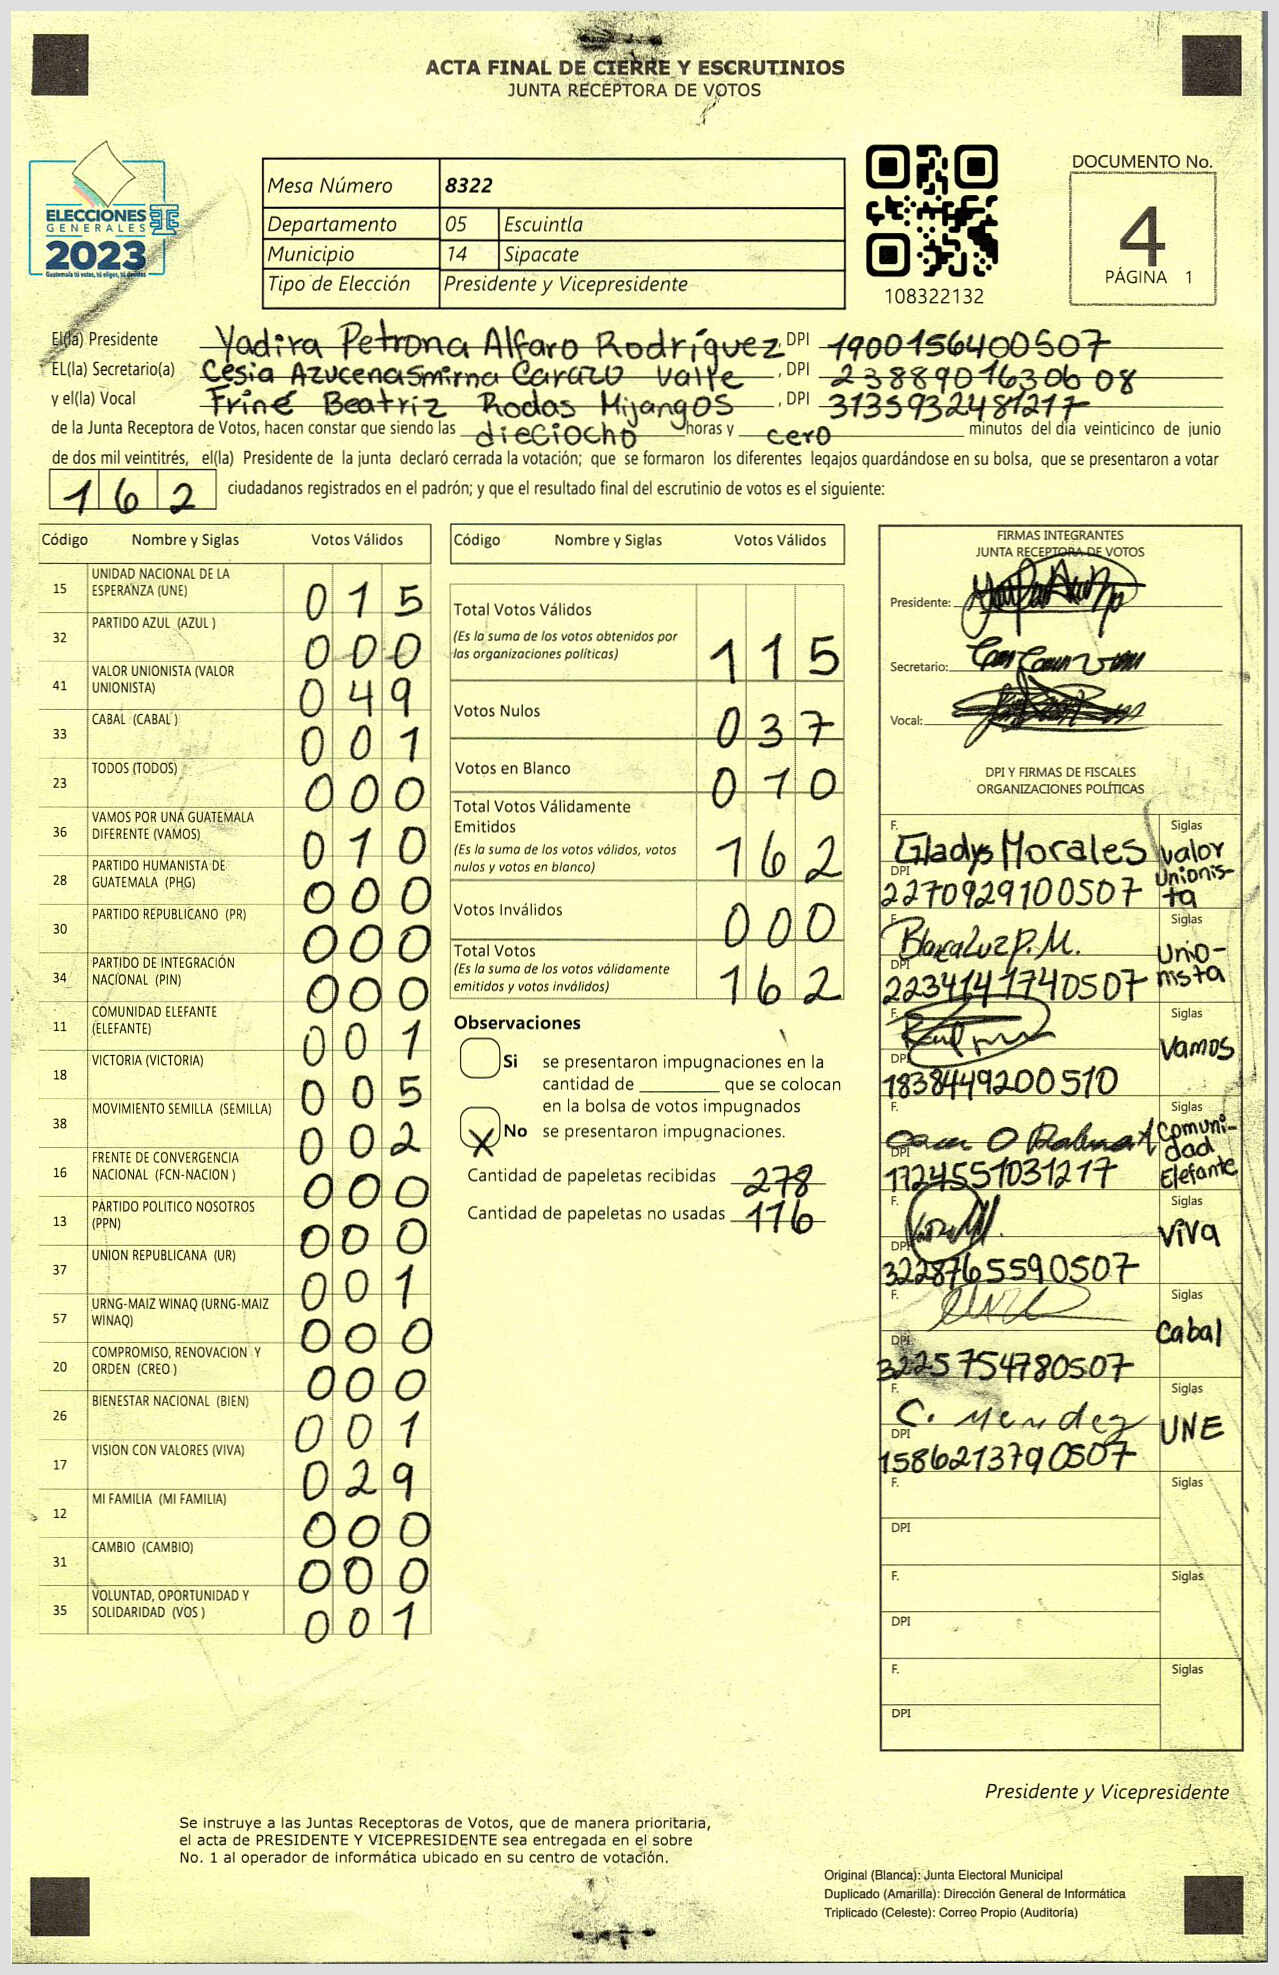 ACTA FINAL DE CIERRE Y ESCRUTINIOS
JUNTA RECEPTORA DE VOTOS
ELECCIONES
GENERALES
2023
Guatemala tú votas, tú eliges, tú decides
Mesa Número 8322
Departamento 05 Escuintla
Municipio 14 Sipacate
Tipo de Elección Presidente y Vicepresidente
108322132
DOCUMENTO No.
4
PÁGINA 1
El(la) Presidente Yadira Petrona Alfaro Rodríguez, DPI 1900156400507
EL(la) Secretario(a) Cesia Azucena Smirna Carazo Valle, DPI 2388901630608
y el(la) Vocal Friné Beatriz Rodas Mijangos, DPI 3135932481217
de la Junta Receptora de Votos, hacen constar que siendo las dieciocho horas y cero minutos del día veinticinco de junio
de dos mil veintitrés, el(la) Presidente de la junta declaró cerrada la votación; que se formaron los diferentes legajos guardándose en su bolsa, que se presentaron a votar
162 ciudadanos registrados en el padrón; y que el resultado final del escrutinio de votos es el siguiente:
Código Nombre y Siglas Votos Válidos
15 UNIDAD NACIONAL DE LA ESPERANZA (UNE) 015
32 PARTIDO AZUL (AZUL ) 000
41 VALOR UNIONISTA (VALOR UNIONISTA) 049
33 CABAL (CABAL ) 001
23 TODOS (TODOS) 000
36 VAMOS POR UNA GUATEMALA DIFERENTE (VAMOS) 010
28 PARTIDO HUMANISTA DE GUATEMALA (PHG) 000
30 PARTIDO REPUBLICANO (PR) 000
34 PARTIDO DE INTEGRACIÓN NACIONAL (PIN) 000
11 COMUNIDAD ELEFANTE (ELEFANTE) 001
18 VICTORIA (VICTORIA) 005
38 MOVIMIENTO SEMILLA (SEMILLA) 002
16 FRENTE DE CONVERGENCIA NACIONAL (FCN-NACION ) 000
13 PARTIDO POLITICO NOSOTROS (PPN) 000
37 UNION REPUBLICANA (UR) 001
57 URNG-MAIZ WINAQ (URNG-MAIZ WINAQ) 000
20 COMPROMISO, RENOVACION Y ORDEN (CREO ) 000
26 BIENESTAR NACIONAL (BIEN) 001
17 VISION CON VALORES (VIVA) 029
12 MI FAMILIA (MI FAMILIA) 000
31 CAMBIO (CAMBIO) 000
35 VOLUNTAD, OPORTUNIDAD Y SOLIDARIDAD (VOS ) 001
Código Nombre y Siglas Votos Válidos
Total Votos Válidos
(Es la suma de los votos obtenidos por
las organizaciones políticas) 115
Votos Nulos 037
Votos en Blanco 010
Total Votos Válidamente
Emitidos
(Es la suma de los votos válidos, votos
nulos y votos en blanco) 162
Votos Inválidos 000
Total Votos
(Es la suma de los votos válidamente
emitidos y votos inválidos) 162
Observaciones
Si se presentaron impugnaciones en la
cantidad de ________ que se colocan
en la bolsa de votos impugnados
X No se presentaron impugnaciones.
Cantidad de papeletas recibidas 278
Cantidad de papeletas no usadas 116
FIRMAS INTEGRANTES
JUNTA RECEPTORA DE VOTOS
Presidente:
Secretario:
Vocal:
DPI Y FIRMAS DE FISCALES
ORGANIZACIONES POLÍTICAS
F. Gladys Morales Siglas Valor Unionis-ta
DPI 2270929100507
F. Blanca Luz P. M. Siglas Unio-nista
DPI 2234141740507
F. Siglas Vamos
DPI 1838449200510
F. Siglas Comuni-dad Elefante
DPI 1724551031217
F. Siglas Viva
DPI 3228765590507
F. Siglas Cabal
DPI 3225754780507
F. C. Mendez Siglas UNE
DPI 1586213790507
F. Siglas
DPI
F. Siglas
DPI
F. Siglas
DPI
Presidente y Vicepresidente
Se instruye a las Juntas Receptoras de Votos, que de manera prioritaria,
el acta de PRESIDENTE Y VICEPRESIDENTE sea entregada en el sobre
No. 1 al operador de informática ubicado en su centro de votación.
Original (Blanca): Junta Electoral Municipal
Duplicado (Amarilla): Dirección General de Informática
Triplicado (Celeste): Correo Propio (Auditoría)